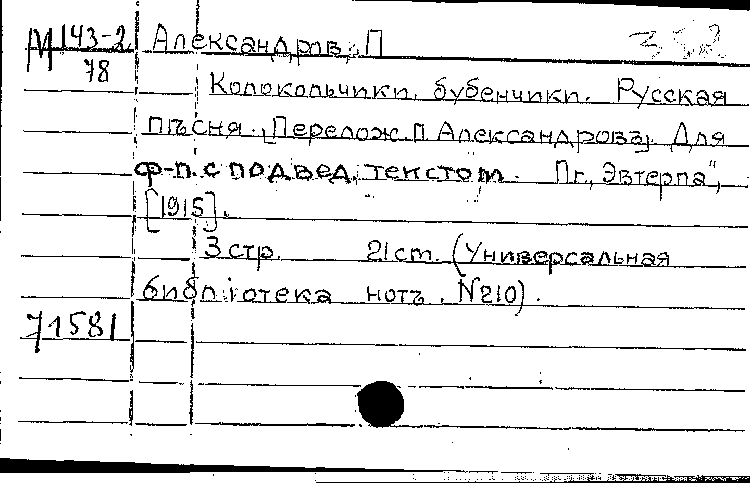 М 143-2 Александров, П
78
Колокольчики, бубенчики. Русская
пѣсня. [Перелож. П. Александровъ]. Для
ф-п. с подвед. текстом. Пг., Эвтерпа",
[1915].
3 стр. 21 cm. (Универсальная
библіотека нотъ. N210).
71581